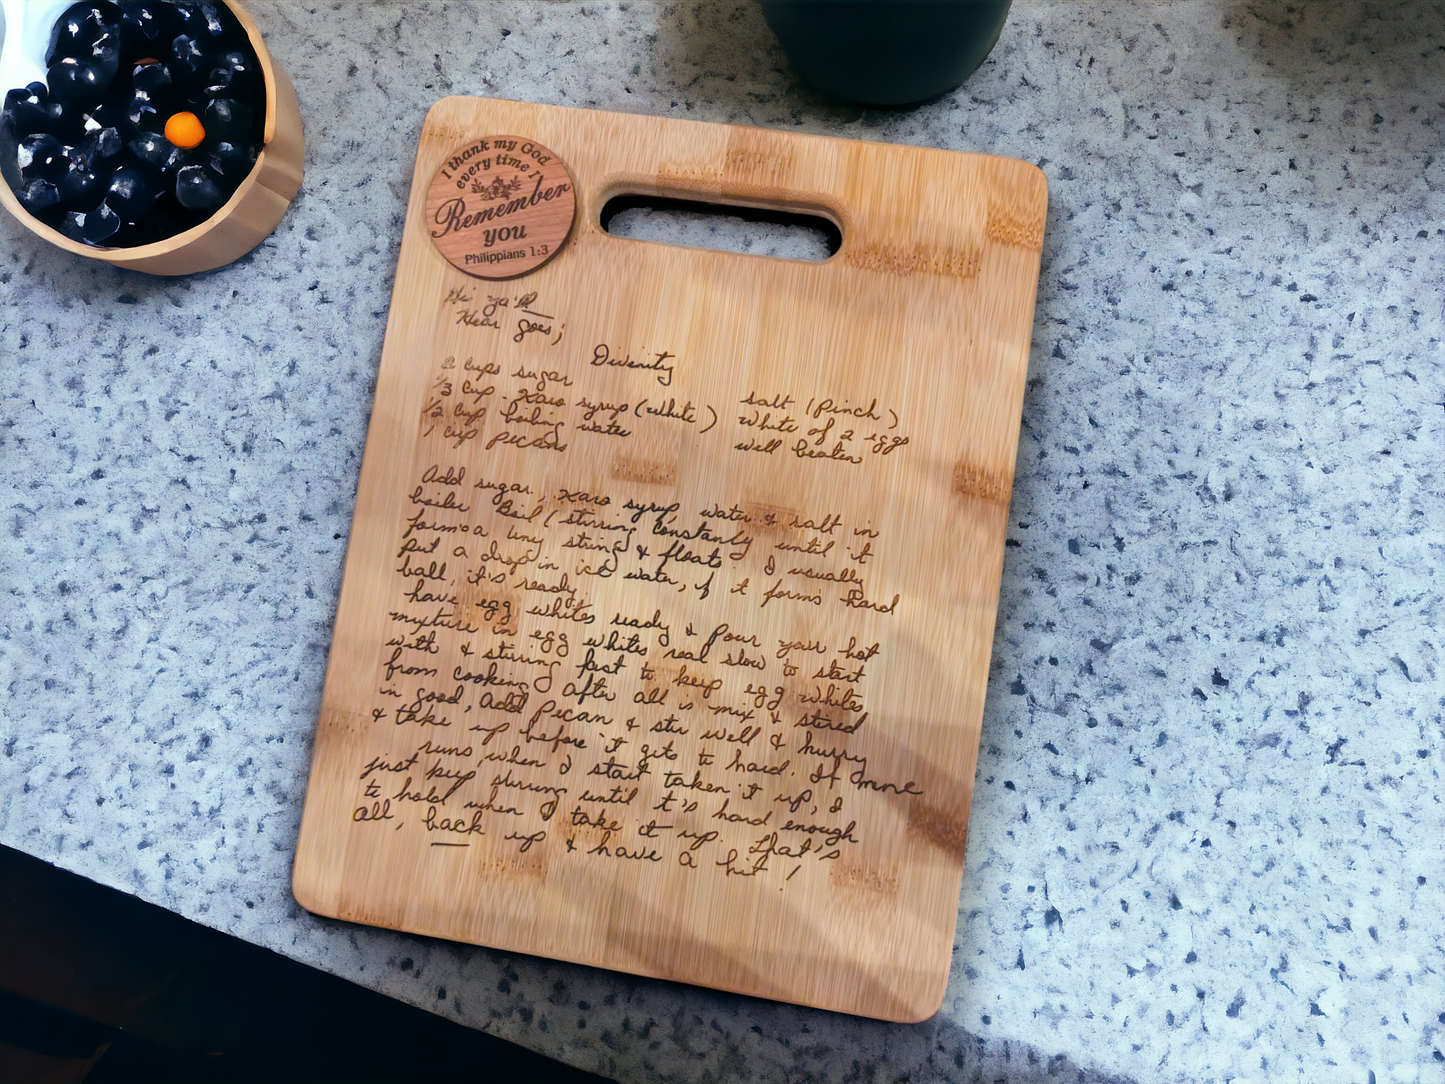 I thank my God
every time I
Remember
you
Philippians 1:3
Hi ya'll
Hear goes;
Divinity
2 cups sugar
1/3 cup Karo syrup (white)
1/2 cup boiling water
1 cup pecans
salt (pinch)
white of 2 eggs
well beaten
Add sugar, Karo syrup, water & salt in
boiler Boil (stirring constantly until it
forms a tiny string & floats. I usually
put a drop in ice water, if it forms hard
ball, it's ready.
have egg whites ready & pour your hot
mixture in egg whites real slow to start
with & stirring fast to keep egg whites
from cooking after all is mix & stired
in good, add pecan & stir well & hurry
& take up before it gets to hard. If mine
runs when I start taken it up, I
just keep stirring until it's hard enough
to hold when I take it up. That's
all, back up & have a hit!